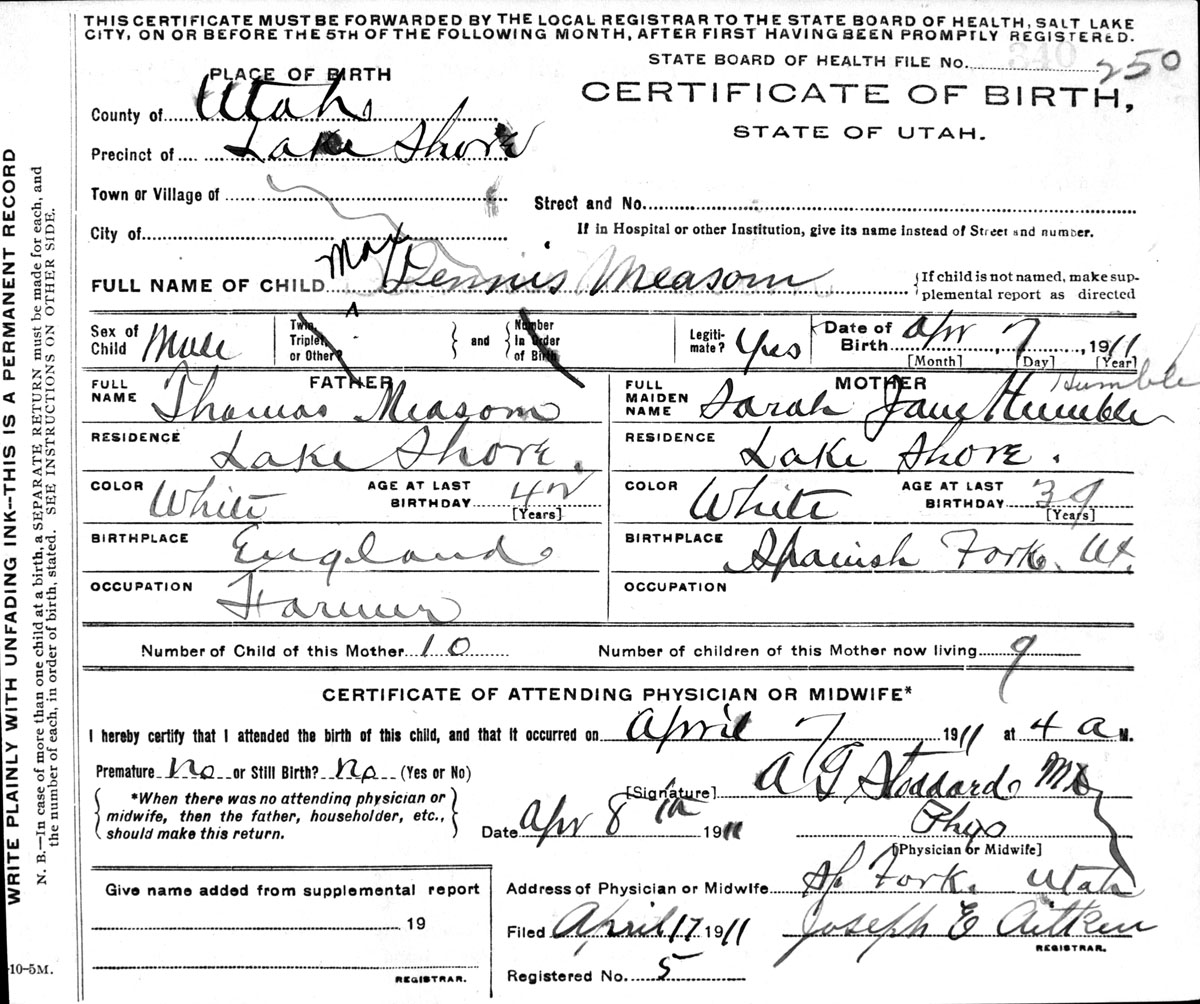 THIS CERTIFICATE MUST BE FORWARDED BY THE LOCAL REGISTRAR TO THE STATE BOARD OF HEALTH, SALT LAKE
CITY, ON OR BEFORE THE 5TH OF THE FOLLOWING MONTH, AFTER FIRST HAVING BEEN PROMPTLY REGISTERED.
STATE BOARD OF HEALTH FILE No. 340 250
PLACE OF BIRTH
CERTIFICATE OF BIRTH,
STATE OF UTAH.
County of Utah
Precinct of Lake Shore
Town or Village of
Street and No.
City of
If in Hospital or other Institution, give its name instead of Street and number.
FULL NAME OF CHILD Max Dennis Measom
If child is not named, make sup-
plemental report as directed
Sex of Child Male
Twin, Triplet, or Other?
and
Number In Order of Birth
Legiti-mate? Yes
Date of Birth Apr 7, 1911
[Month] [Day] [Year]
FATHER
FULL NAME Thomas Measom
RESIDENCE Lake Shore.
COLOR White AGE AT LAST BIRTHDAY 42
[Years]
BIRTHPLACE England
OCCUPATION Farmer
MOTHER Humble
FULL MAIDEN NAME Sarah Jane Humble
RESIDENCE Lake Shore.
COLOR White AGE AT LAST BIRTHDAY 39
[Years]
BIRTHPLACE Spanish Fork. Ut.
OCCUPATION
Number of Child of this Mother 10 Number of children of this Mother now living 9
CERTIFICATE OF ATTENDING PHYSICIAN OR MIDWIFE*
I hereby certify that I attended the birth of this child, and that it occurred on April 7 1911 at 4 a M.
Premature No or Still Birth? No (Yes or No)
[Signature] A G Stoddard MD
*When there was no attending physician or
midwife, then the father, householder, etc.,
should make this return.
Date Apr 8th 1911
Phys
[Physician or Midwife]
Give name added from supplemental report
19
REGISTRAR.
Address of Physician or Midwife Sp Fork. Utah
Filed April 17 1911 Joseph E Aitken
REGISTRAR.
Registered No. 5
-10-5M.
WRITE PLAINLY WITH UNFADING INK—THIS IS A PERMANENT RECORD
N. B.—In case of more than one child at a birth, a SEPARATE RETURN must be made for each, and
the number of each, in order of birth, stated. SEE INSTRUCTIONS ON OTHER SIDE.